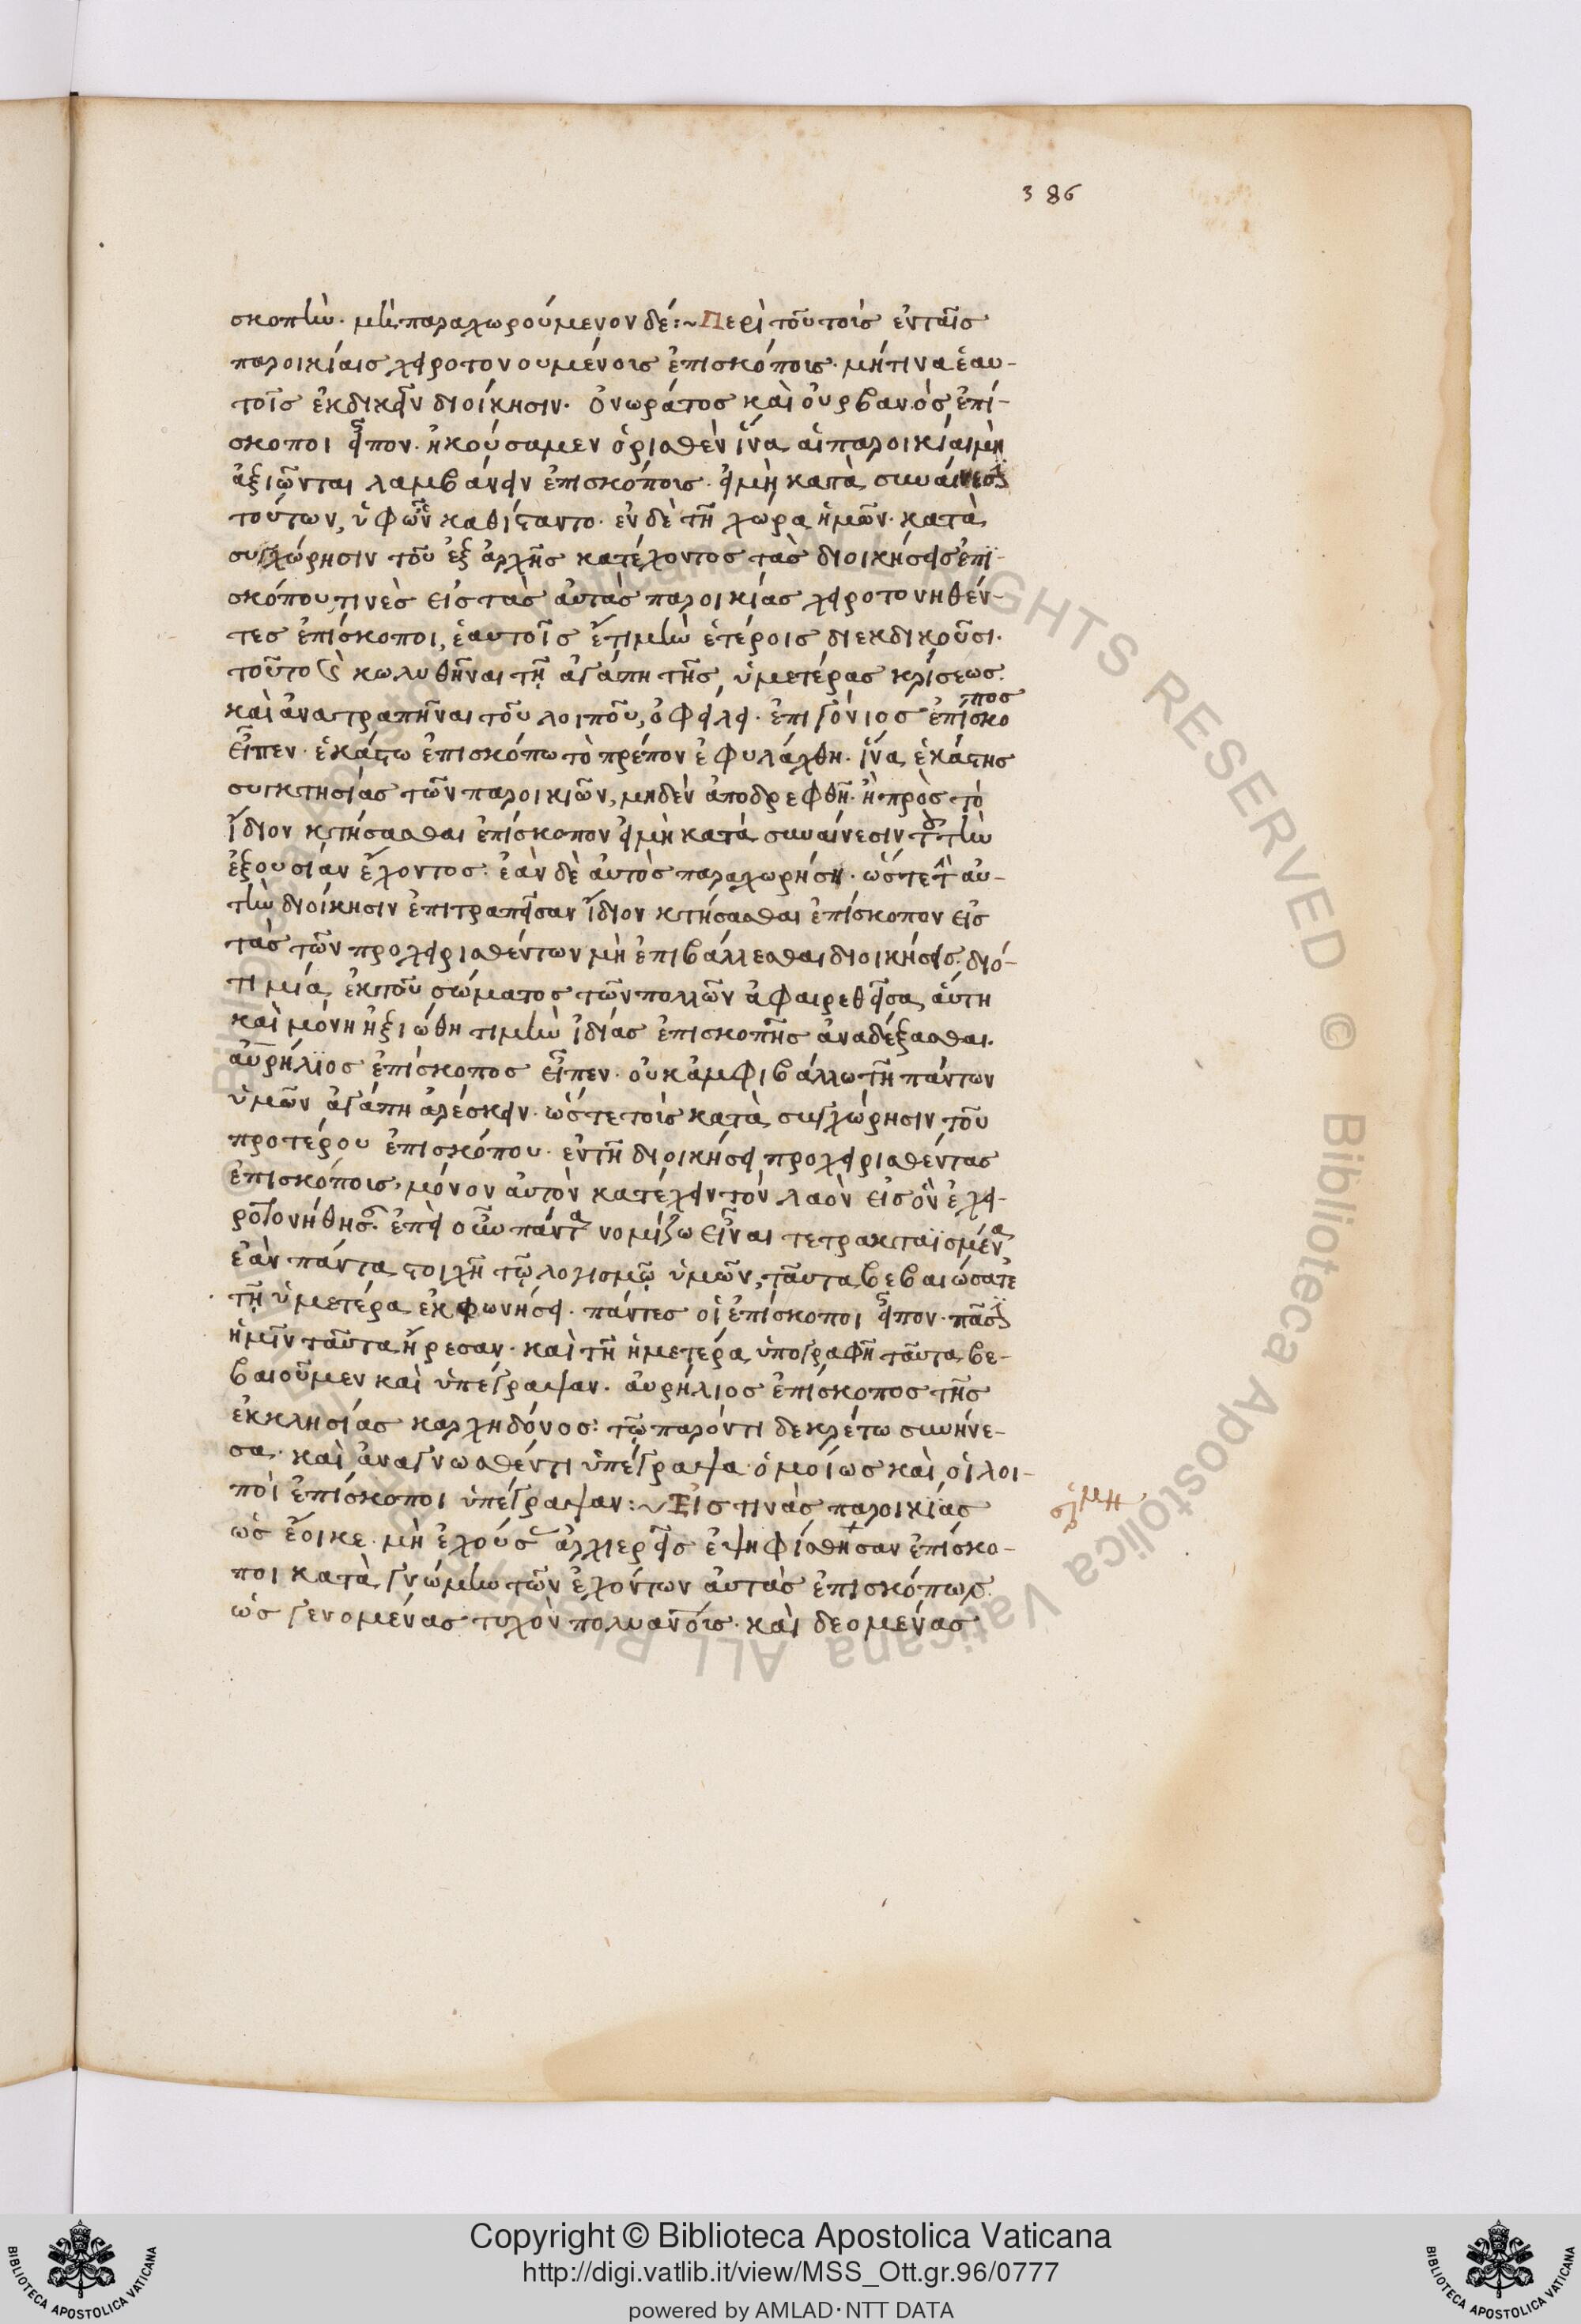 386
σκοπὴν. μὴ παραχωρούμενον δέ:~ Περὶ τοῦ τοὺς ἐν ταῖς
παροικίαις χειροτονουμένους ἐπισκόπους. μήτινα ἑαυ-
τοῖς ἐκδικεῖν διοίκησιν. ὀνωράτος καὶ οὐρβανὸς ἐπί-
σκοποι εἶπον. ἠκούσαμεν ὁρισθὲν ἵνα αἱ παροικίαι μὴ
ἀξιῶνται λαμβάνειν ἐπισκόπους. εἰμὴ κατὰ συναίνεσϊ
τούτων, ὑφ' ὧν καθίσταντο. ἐν δὲ τῆ χώρα ἡμῶν. κατὰ
συγχώρησιν τοῦ ἐξ ἀρχῆς κατέχοντος τὰς διοικήσεις ἐπι-
σκόπου τινὲς εἰς τὰς αὐτὰς παροικίας χειροτονηθέν-
τες ἐπίσκοποι, ἑαυτοῖς ἔτι μὴν ἑτέρους διεκδικοῦσι.
τοῦτο κωλυθῆναι τῆ ἀγάπη τῆς ὑμετέρας κρίσεως.
καὶ ἀνατραπῆναι τοῦ λοιποῦ, ὀφείλει. ἐπιγόνιος ἐπίσκοπος
εἶπεν. ἑκάστω ἐπισκόπω τὸ πρέπον ἐφυλάχθη. ἵνα ἑκάστης
συγκτησίας τῶν παροικιῶν, μηδὲν ἀποδρεφθῆ. ἢ πρὸς τὸ
ἴδιον κτήσασθαι ἐπίσκοπον εἰμὴ κατὰ συναίνεσιν τοῦ τὴν
ἐξουσίαν ἔχοντος. ἐὰν δὲ αὐτὸς παραχωρήση. ὥστε τ̂ αὐ-
τὴν διοίκησιν ἐπιτραπεῖσαν ἴδιον κτήσασθαι ἐπίσκοπον εἰς
τὰς τῶν προχειρισθέντων μὴ ἐπιβάλλεσθαι διοικήσεις. διό-
τι μία ἐκ τοῦ σώματος τῶν πολλῶν ἀφαιρεθεῖσα αὕτη
καὶ μόνη ἠξιώθη τιμὴν ἰδίας ἐπισκοπῆς ἀναδέξασθαι.
αὐρήλϊος ἐπίσκοπος εἶπεν. οὐκ ἀμφιβάλλω τῆ πάντων
ὑμῶν ἀγάπη ἀρέσκειν. ὥστε τοὺς κατὰ συγχώρησιν τοῦ
προτέρου ἐπισκόπου. ἐν τῆ διοικήσει προχειρισθέντας
ἐπισκόπους, μόνον αὐτὸν κατέχειν τὸν λαὸν εἰς ὃν ἐχει-
ροτονήθησαν. ἐπεὶ οὖν πάντα νομίζω εἶναι τετρακταϊσμένα
ἐὰν πάντα στοιχῆ τῶ λογισμῶ ὑμῶν, ταῦτα βεβαιώσατε
τῆ ὑμετέρα ἐκφωνήσει. πάντες οἱ ἐπίσκοποι εἶπον. πᾶσϊ
ἡμῖν ταῦτα ἤρεσαν. καὶ τῆ ἡμετέρα ὑπογραφῆ ταῦτα βε-
βαιοῦμεν καὶ ὑπέγραψαν. αὐρήλιος ἐπίσκοπος τῆς
ἐκκλησίας καρχηδόνος: τῶ παρόντι δεκρέτω συνήνε-
σα. καὶ ἀναγνωσθέντι ὑπέγραψα. ὁμοίως καὶ οἱ λοι-
ποὶ ἐπίσκοποι ὑπέγραψαν:~ Εἰς τινὰς παροικίας
ὡς ἔοικε. μὴ ἐχούσας ἀρχιερεῖς ἐψηφίσθησαν ἐπίσκο-
ποι κατὰ γνώμην τῶν ἐχόντων αὐτὰς ἐπισκόπων.
ὡς γενομένας τυχὸν πολυανους. καὶ δεομένας